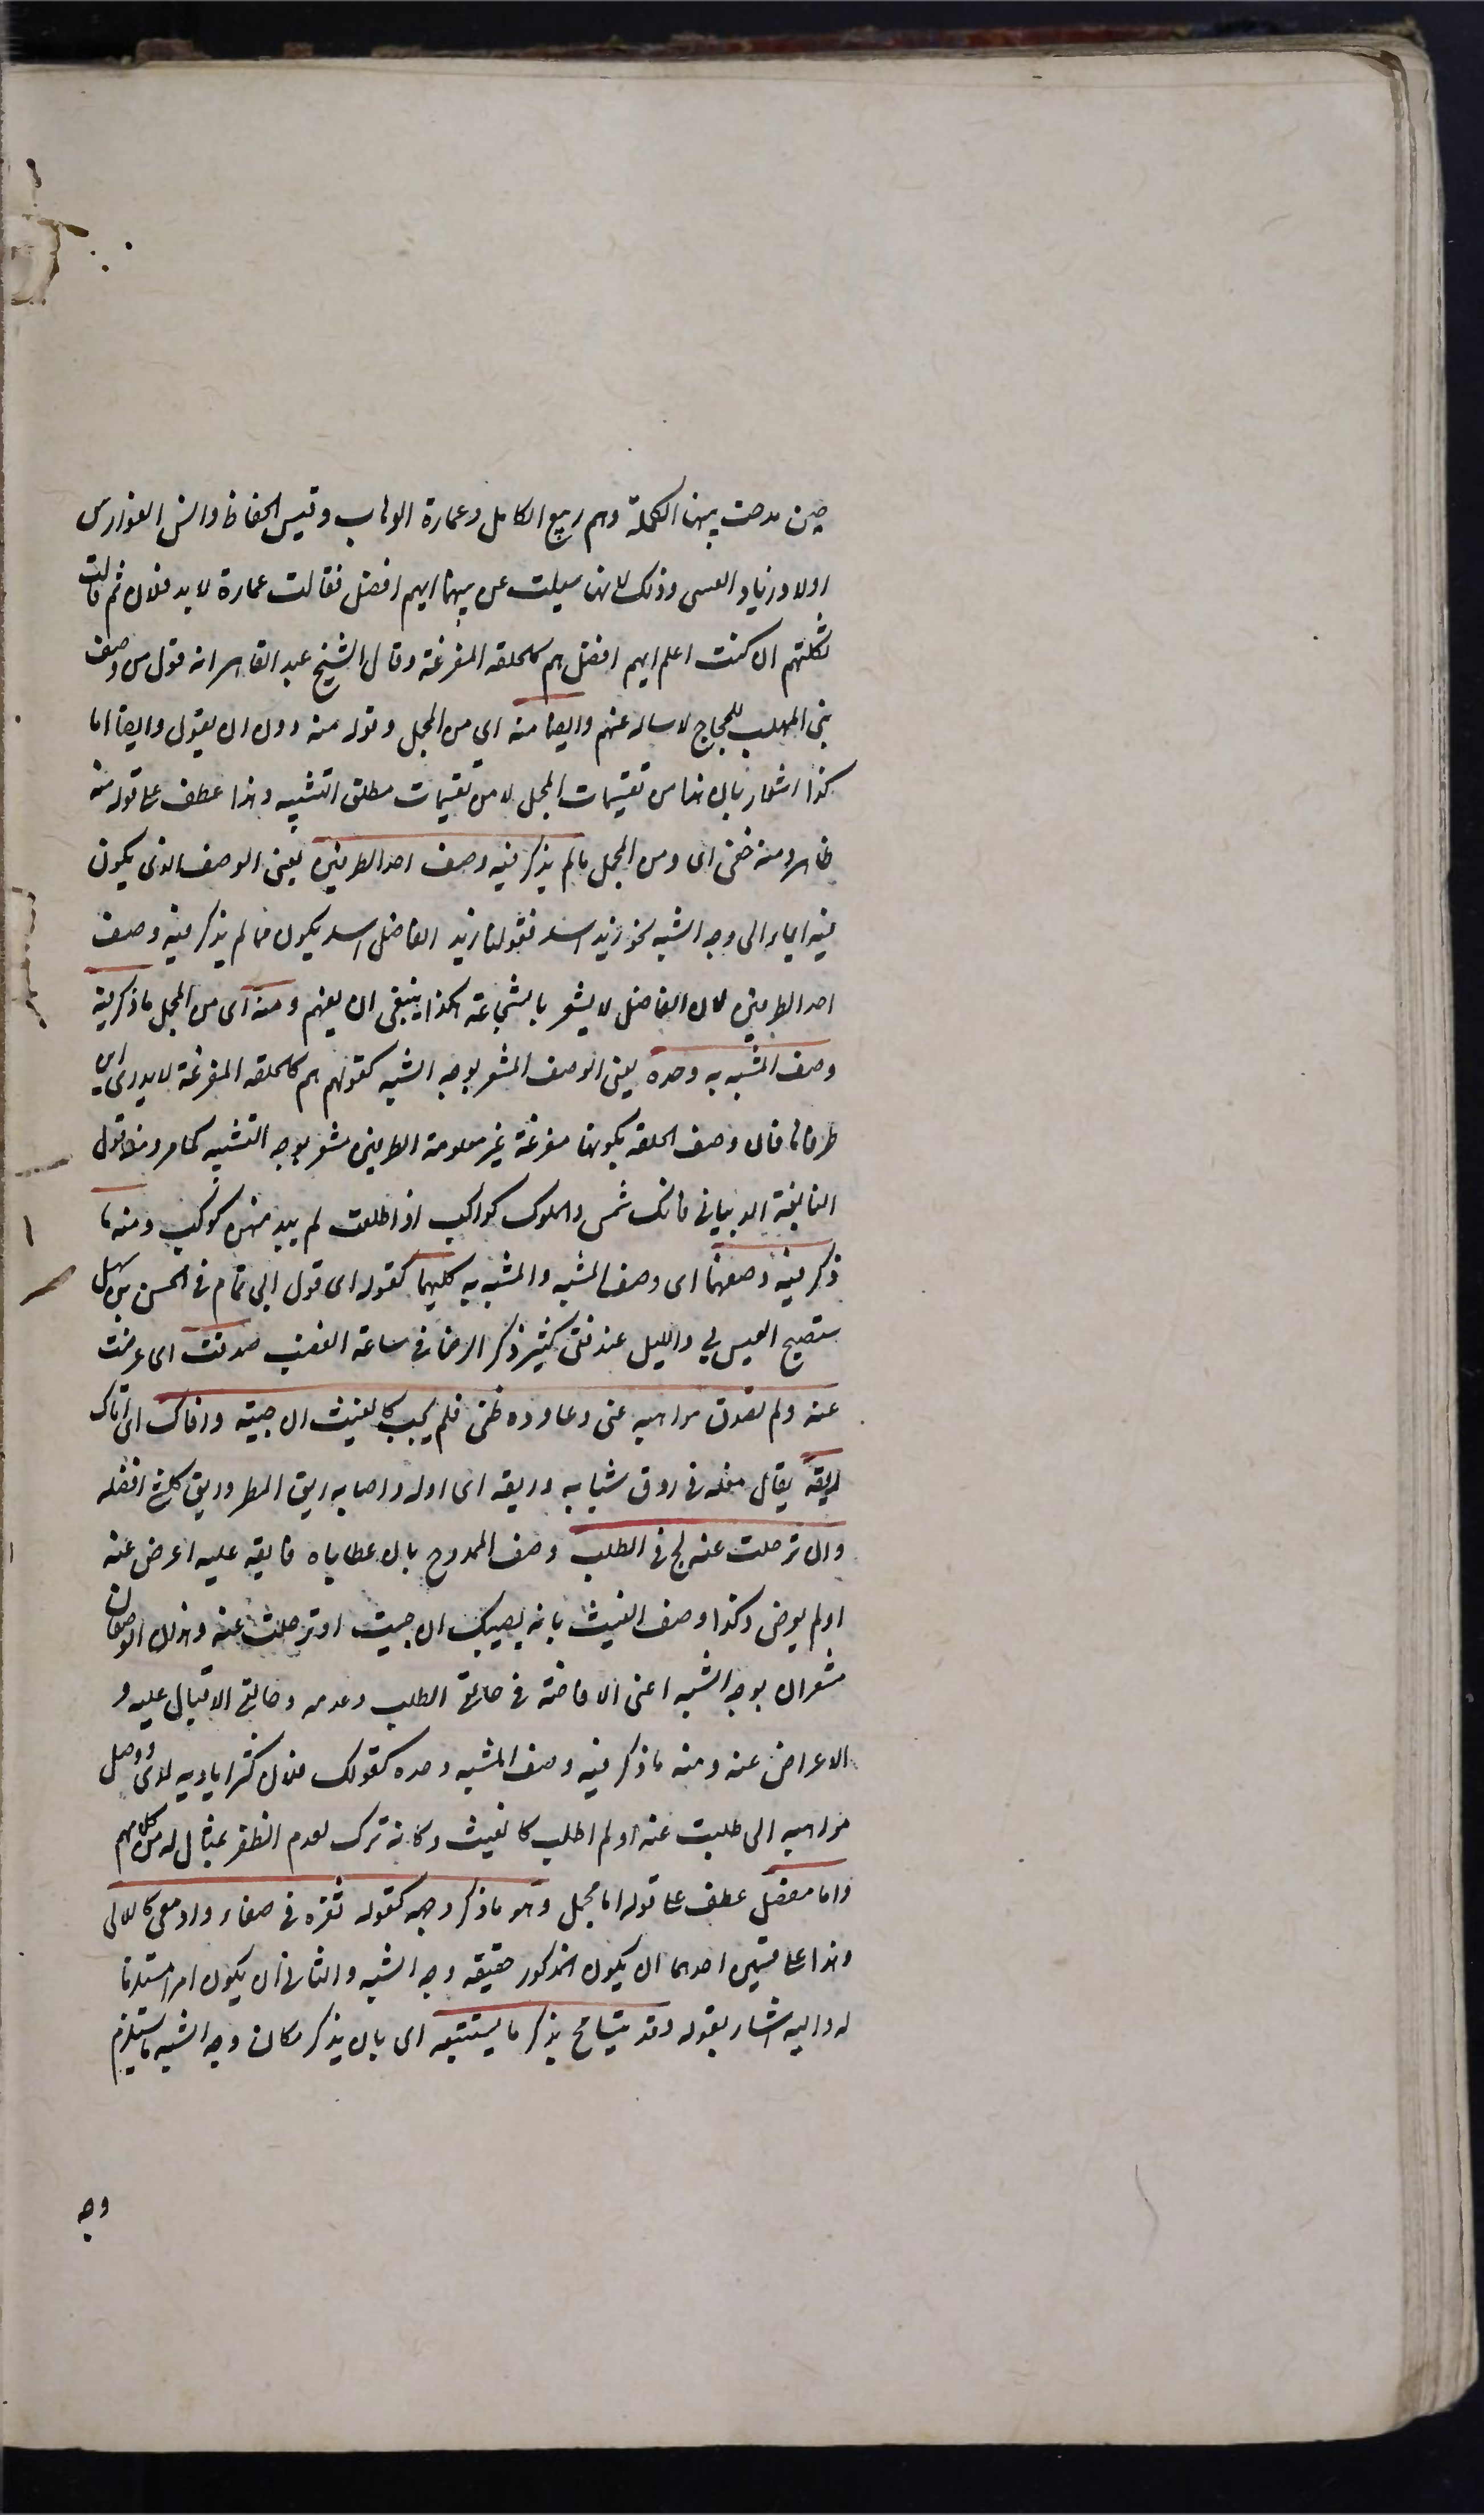 حين مدحت بنيها الكملة وهم ربيع الكامل وعمارة الوهاب وقيس الحفاظ وانس الفوارس
اولاد زياد العبسى وذلك لانها سيلت عن بنيها ايهم افضل فقالت عمارة لا بد فلان ثم قالت
ثكلتهم ان كنت اعلم ايهم افضل هم كالحلقه المفرغة وقال الشيخ عبد القاهر انه قول من وصف
بنى المهلب للحجاج لا ساله عنهم وايضا منه اى من المجمل وقوله منه دون ان يقول وايضا اما
كذا اشعار بان هذا من تقسيمات المجمل لا من تقسيمات مطلق التشبيه وهذا عطف على قوله منه
ظاهر ومنه خفى اى ومن المجمل ما لم يذكر فيه وصف احد الطرفين يعنى الوصف الذى يكون
فيه ايماء الى وجه الشبه نحو زيد اسد فقولنا زيد الفاضل اسد يكون مما لم يذكر فيه وصف
احد الطرفين لان الفاضل لا يشعر بالشجاعة هكذا ينبغى ان يفهم ومنه اى من المجمل ما ذكر فيه
وصف المشبه به وحده يعنى الوصف المشعر بوجه الشبه كقولهم هم كالحلقه المفرغة لا يدرى اين
طرفاها فان وصف الحلقه بكونها مفرغة غير معلومة الطرفين مشعر بوجه التشبيه كما مر ومنه قول
النابغة الذبيانى فانك شمس والملوك كواكب اذا طلعت لم يبد منهن كوكب ومنه ما
ذكر فيه وصفهما اى وصف المشبه والمشبه به كليهما كقوله اى قول ابى تمام فى الحسن بن سهل
ستصبح العيس بي والليل عند فتى كثير ذكر الرضا فى ساعة الغضب صدفت اى عرضت
عنه ولم تصدف مواهبه عنى وعاوده ظنى فلم يخب كالغيث ان جيته وافاك اى اتاك
ريقه يقال فعله فى روق شبابه وريقه اى اوله واصابه ريق المطر وريق كل شئ افضله
وان ترحلت عنه لج فى الطلب وصف الممدوح بان عطاياه فايقة عليه اعرض عنه
او لم يعرض وكذا وصف الغيث بانه يصيبك ان جيت او ترحلت عنه وهذان الوصفان
مشعران بوجه الشبه اعنى الافاضة فى حالتى الطلب وعدمه وحالتى الاقبال عليه و
الاعراض عنه ومنه ما ذكر فيه وصف المشبه وحده كقولك فلان كثر اياديه لدى ووصل
مواهبه الى طلبت عنه او لم اطلب كالغيث وكانه ترك لعدم الظفر بمثال له من كلامهم
واما مفصل عطف على قوله اما مجمل وهو ما ذكر وجهه كقوله ثغره فى صفاء وادمعى كاللالى
وهذا على قسمين احدهما ان يكون المذكور حقيقه وجه الشبه والثانى ان يكون امرا مستلزما
له واليه اشار بقوله وقد يتسامح بذكر ما يستتبعه اى بان يذكر مكان وجه الشبه ما يستلزم
وجه